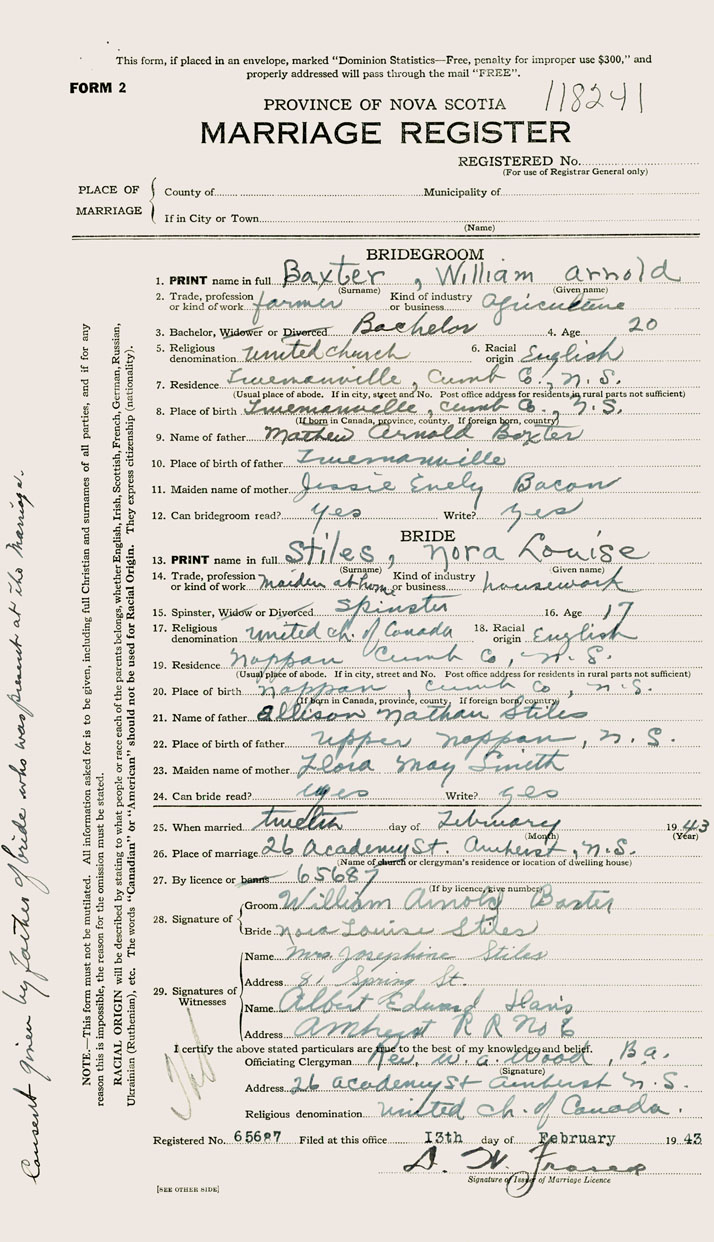 This form, if placed in an envelope, marked “Dominion Statistics—Free, penalty for improper use $300,” and
properly addressed will pass through the mail “FREE”.
FORM 2
PROVINCE OF NOVA SCOTIA 118241
MARRIAGE REGISTER
REGISTERED No.
(For use of Registrar General only)
PLACE OF MARRIAGE
County of Municipality of
If in City or Town
(Name)
BRIDEGROOM
1. PRINT name in full Baxter, William Arnold
(Surname) (Given name)
2. Trade, profession or kind of work farmer Kind of industry or business agriculture
3. Bachelor, Widower or Divorced Bachelor 4. Age 20
5. Religious denomination United church 6. Racial origin English
7. Residence Truemanville, Cumb Co., N.S.
(Usual place of abode. If in city, street and No. Post office address for residents in rural parts not sufficient)
8. Place of birth Truemanville, Cumb Co., N.S.
(If born in Canada, province, county. If foreign born, country)
9. Name of father Mathew Arnold Baxter
10. Place of birth of father Truemanville
11. Maiden name of mother Jessie Evely Bacon
12. Can bridegroom read? yes Write? yes
BRIDE
13. PRINT name in full Stiles, Nora Louise
(Surname) (Given name)
14. Trade, profession or kind of work maiden at home Kind of industry or business housework
15. Spinster, Widow or Divorced Spinster 16. Age 17
17. Religious denomination United ch. of Canada 18. Racial origin English
19. Residence Nappan Cumb Co, N.S.
(Usual place of abode. If in city, street and No. Post office address for residents in rural parts not sufficient)
20. Place of birth Nappan, Cumb Co, N.S.
(If born in Canada, province, county. If foreign born, country)
21. Name of father Allison Nathan Stiles
22. Place of birth of father Upper Nappan, N.S.
23. Maiden name of mother Flora May Smith
24. Can bride read? yes Write? yes
25. When married twelth day of February 1943
(Month) (Year)
26. Place of marriage 26 Academy St. Amherst, N.S.
(Name of church or clergyman's residence or location of dwelling house)
27. By licence or banns 65687
(If by licence, give number)
28. Signature of
Groom William Arnold Baxter
Bride Nora Louise Stiles
29. Signatures of Witnesses
Name Mrs. Josephine Stiles
Address 81 Spring St.
Name Albert Edward
Address Amherst R R No 6
I certify the above stated particulars are true to the best of my knowledge and belief.
Officiating Clergyman Rev. W. A. Wood, B.A.
(Signature)
Address 26 Academy St Amherst N.S.
Religious denomination United ch. of Canada.
Registered No. 65687 Filed at this office 13th day of February 1943
D. W.
Signature of Issuer of Marriage Licence
[SEE OTHER SIDE]
NOTE.—This form must not be mutilated. All information asked for is to be given, including full Christian and surnames of all parties, and if for any
reason this is impossible, the reason for the omission must be stated.
RACIAL ORIGIN will be described by stating to what people or race each of the parents belongs, whether English, Irish, Scottish, French, German, Russian,
Ukrainian (Ruthenian), etc. The words “Canadian” or “American” should not be used for Racial Origin. They express citizenship (nationality).
Consent given by father of bride who was present at the marriage.